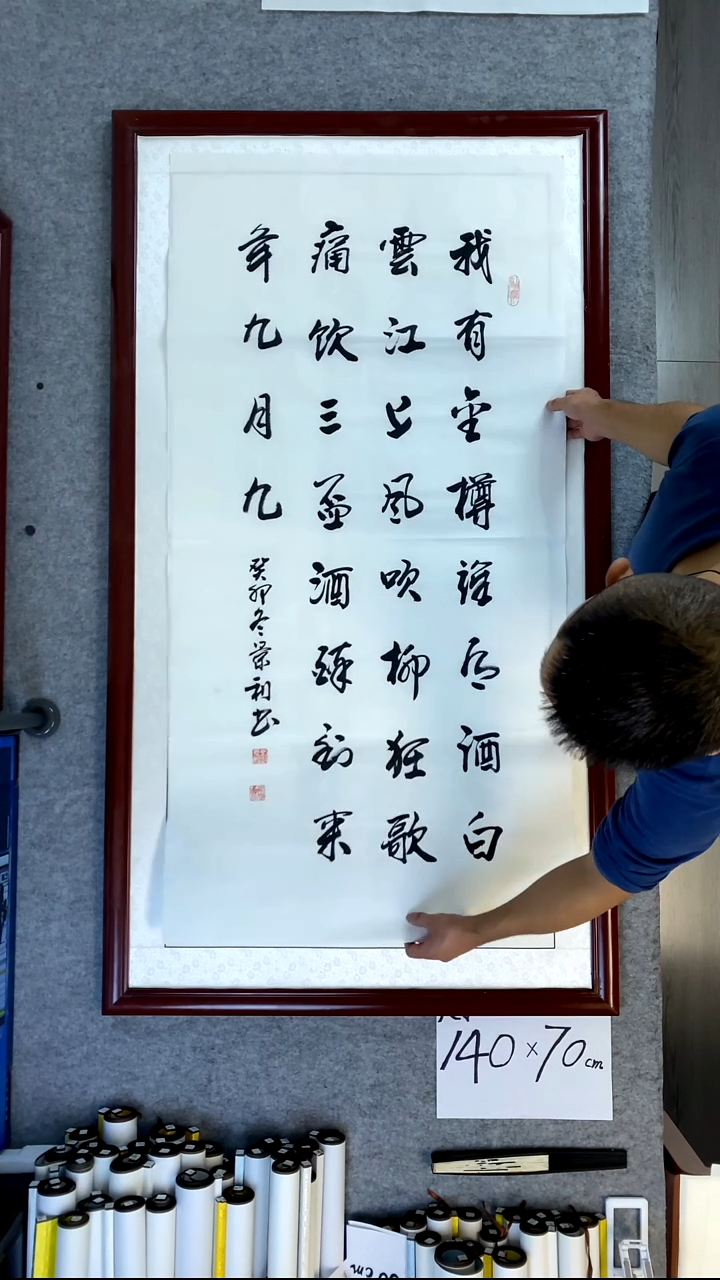 我有金樽谁酒白
雲江上風吹柳狂歌
痛饮三壶酒醉到来
年九月九
癸卯冬荣利书
140×70cm